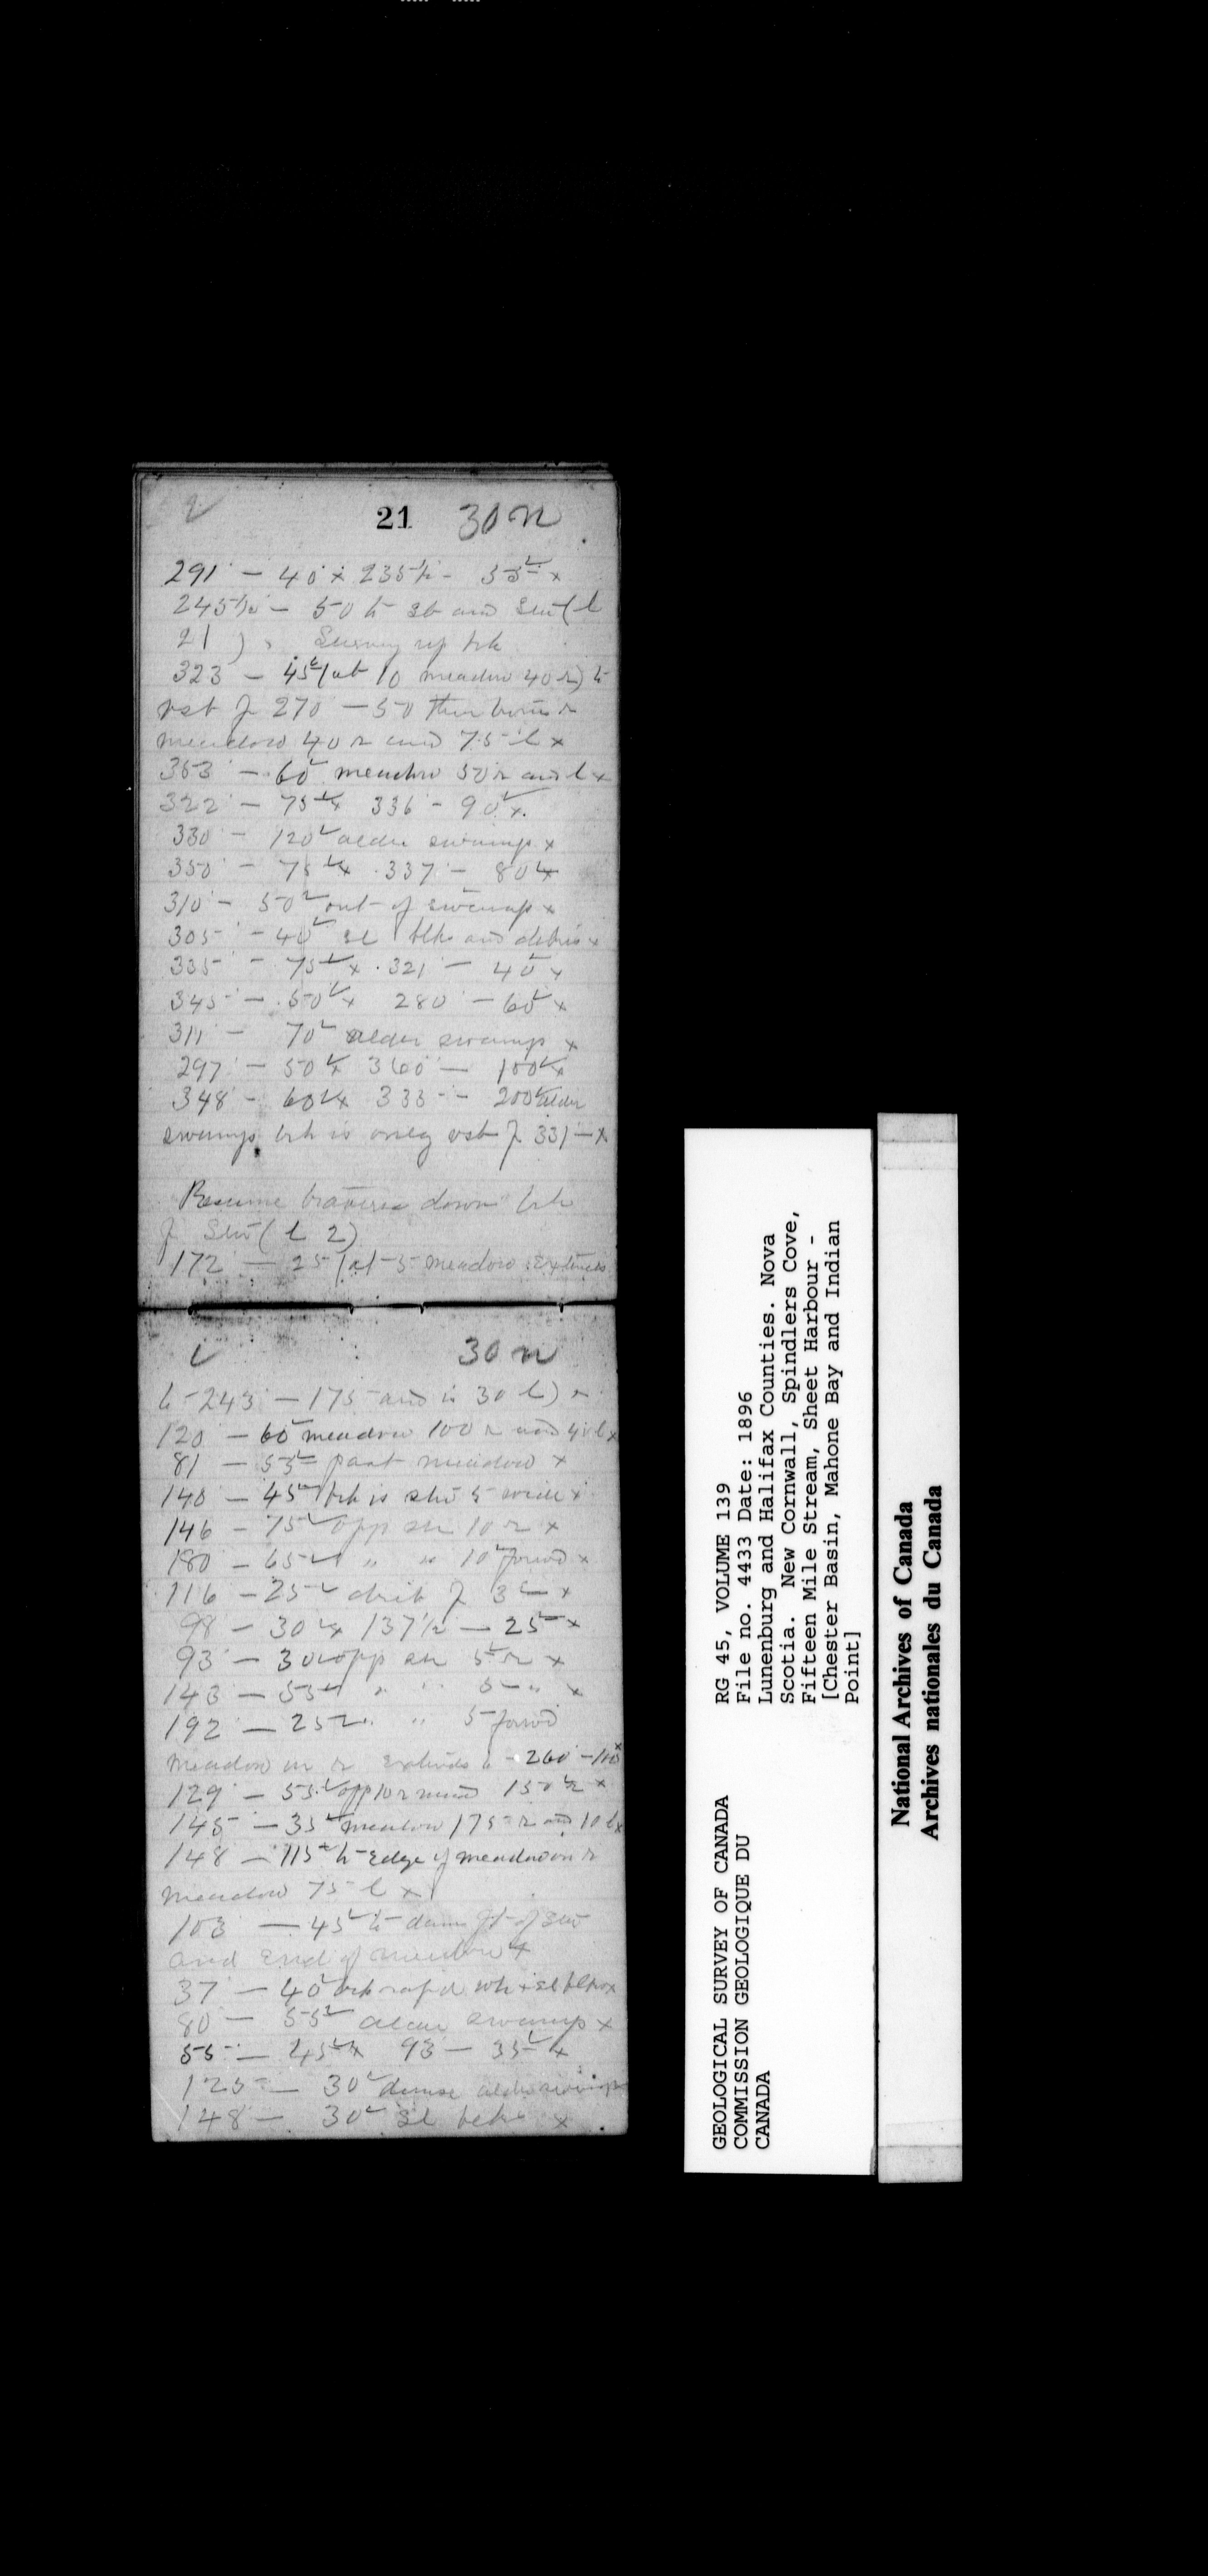 21 30 n
291 — 40 x 235½ — 55 x
245½ — 50 to st and Stn (l
21) Survey up brk
323 — 45 (at 10 meadow 40 r) to
vst f 270 — 50 then
meadow 40 r and 75 l x
353 — 60 meadow 50 r and l x
322 — 75 x 336 — 90 x
330 — 120 alder swamp x
350 — 75 x 337 — 80 x
310 — 50 out of swamp x
305 — 40 sl blks and debris x
335 — 75 x 321 — 40 x
345 — 50 x 280 — 60 x
311 — 70 alder swamp x
297 — 50 x 360 — 100 x
348 — 60 x 333 — 200 alder
swamp brk is only vst f 331 — x
Resume traverse down brk
f Stn (l 2)
172 — 25 (at 5 meadow extends
30 n
to 243 — 175 and is 30 l)
120 — 60 meadow 100 r and 40 l x
81 — 55 past meadow x
140 — 45 brk is still 5 wide x
146 — 75 opp sn 10 r x
180 — 65 " " 10 forwd x
116 — 25 f 3 x
98 — 30 x 137½ — 25 x
93 — 30 opp sn 5 r x
143 — 55 " " 5 " x
192 — 25 " " 5 forwd
meadow on r extends to 260 — 100 x
129 — 55 opp 10 r 150 r x
145 — 35 meadow 175 r and 10 l x
148 — 115 to edge of meadow on r
meadow 75 l x
103 — 45 to dam
and end of meadow x
37 — 40 brk rapid sl blks x
80 — 55 alder swamp x
55 — 45 x 93 — 35 x
125 — 30 dense alder swamp
148 — 30 sl blks x
GEOLOGICAL SURVEY OF CANADA
COMMISSION GEOLOGIQUE DU
CANADA
RG 45, VOLUME 139
File no. 4433 Date: 1896
Lunenburg and Halifax Counties. Nova
Scotia. New Cornwall, Spindlers Cove,
Fifteen Mile Stream, Sheet Harbour -
[Chester Basin, Mahone Bay and Indian
Point]
National Archives of Canada
Archives nationales du Canada